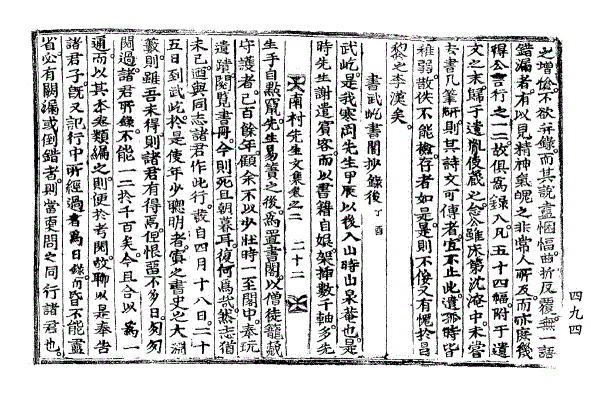 之增愴。不欲并錄而其說盡悃愊。曲折反覆。無一語
錯漏者。有以見精神氣魄之非常人所及。而亦庶幾
得公言行之一二故俱寫錄入凡五十四幅。附于遺
文之末歸于遺胤俊藏之。念公雖床第沈淹中。未嘗
去書几筆研。則其詩文可傳者。宜不止此。遺孤時皆
稚弱。散佚不能檢存者如是。是則不佞又有愧於昌
黎之李漢矣。
書武屹書閣抄錄後 丁酉
武屹。是我寒岡先生甲辰以後入山時山泉菴也。是
時先生謝遣賓客而以書籍自娛。架揷數千軸。多先
南村先生文集卷之二 二十二
生手自點竄。先生易簀之後。爲置書閣。以僧徒龍藏
守護者。已百餘年。顧余不以少壯時一至閣中。奉玩
遺蹟。閱覽書冊。今則死且朝暮耳。復何爲哉。然志猶
未已。與同志諸君作此行。發自四月十八日。二十
五日到武屹。於是使年少聰明者。寫之書史之大淵
藪。則雖吾未得則諸君有得焉。但恨留不多日。匆匆
閱過。諸君所錄。不能一二於千百矣。今且合以爲一
通。而以其本類編之。則便於考閱。故聊以是奉告
諸君子。旣又記行中所經過者爲日錄。而昏不能盡
省。必有闕漏或倒錯者。則當更問之同行諸君也。
四九四